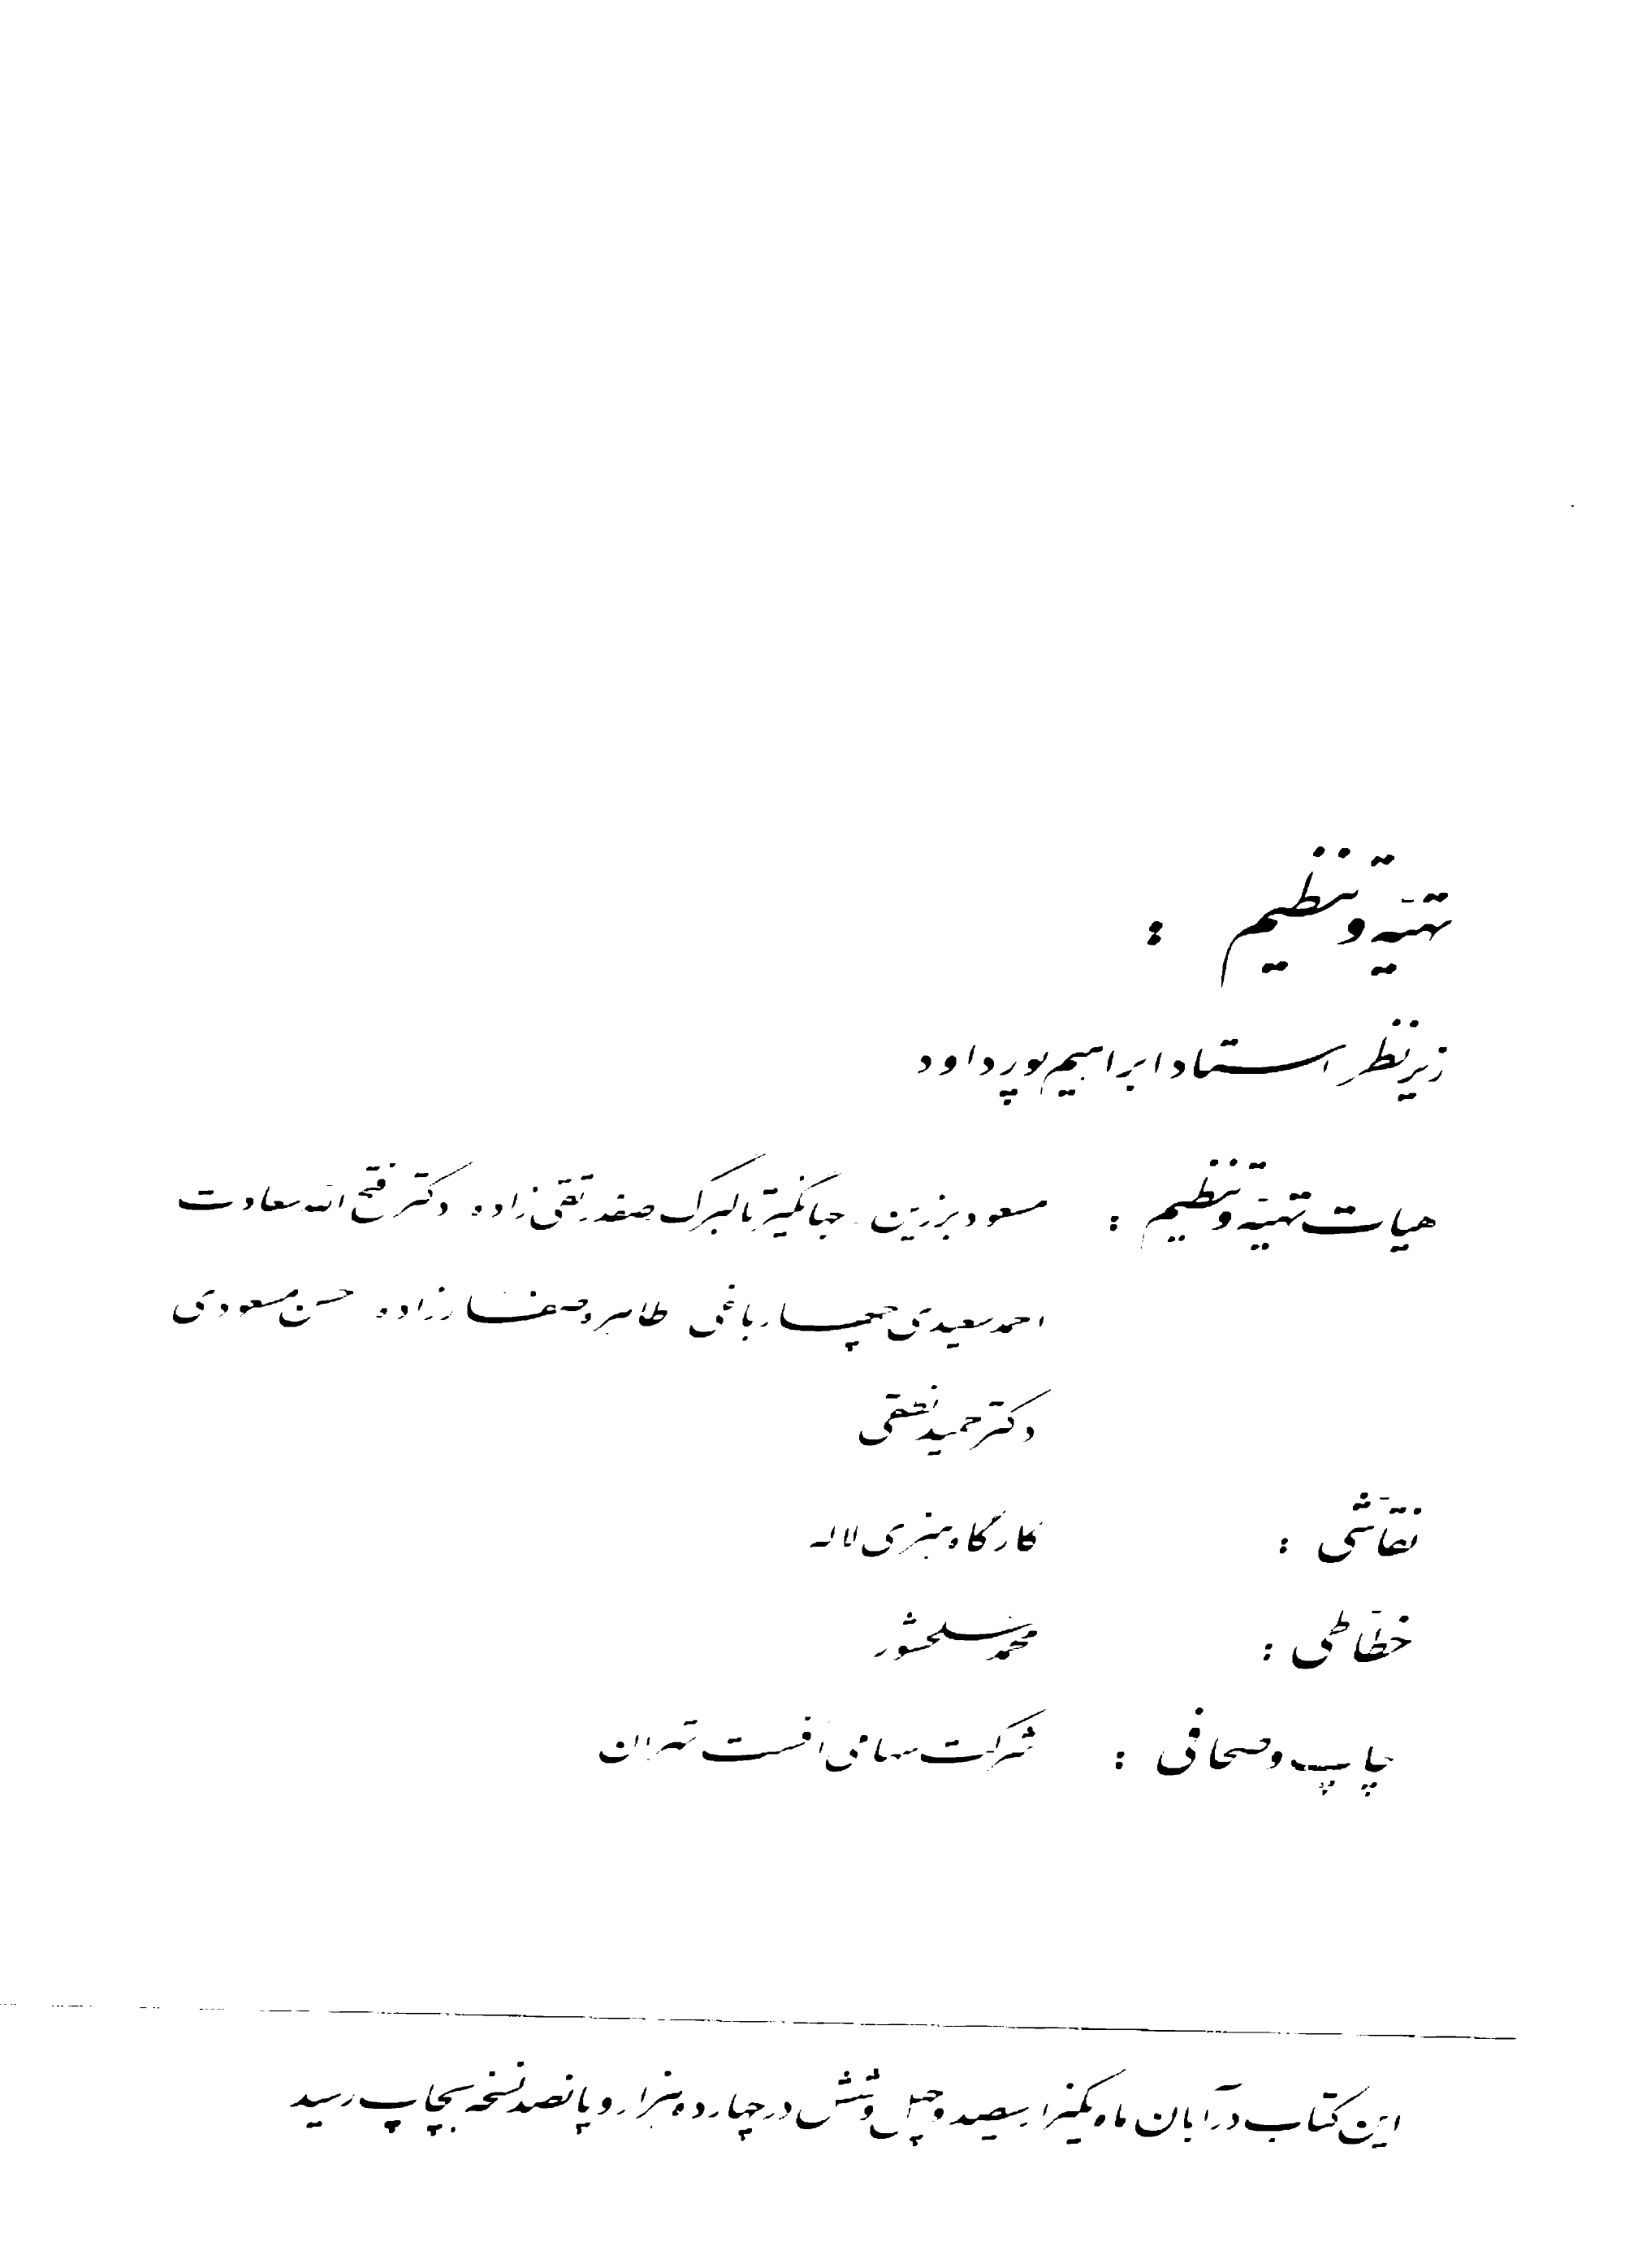 تهیّه و تنظیم :
زیر نظر استاد ابراهیم پورداود
هیات تهیّه و تنظیم : مسعود برزین . جهانگیر تالبرک صفدر تقی زاده دکتر فتح الله سعادت
احمد سعیدی چهار باغی طاهره صفارزاده حسن مسعودی
دکتر حمید نطقی
نقّاشی : کارگاه هنری لاله
خطّاطی : محمد سلحشور
چاپ و صحافی : شرکت سهامی افست تهران
این کتاب در آبان ماه یکهزار سیصد و چهل و شش در چهارده هزار و پانصد نسخه بچاپ رسید